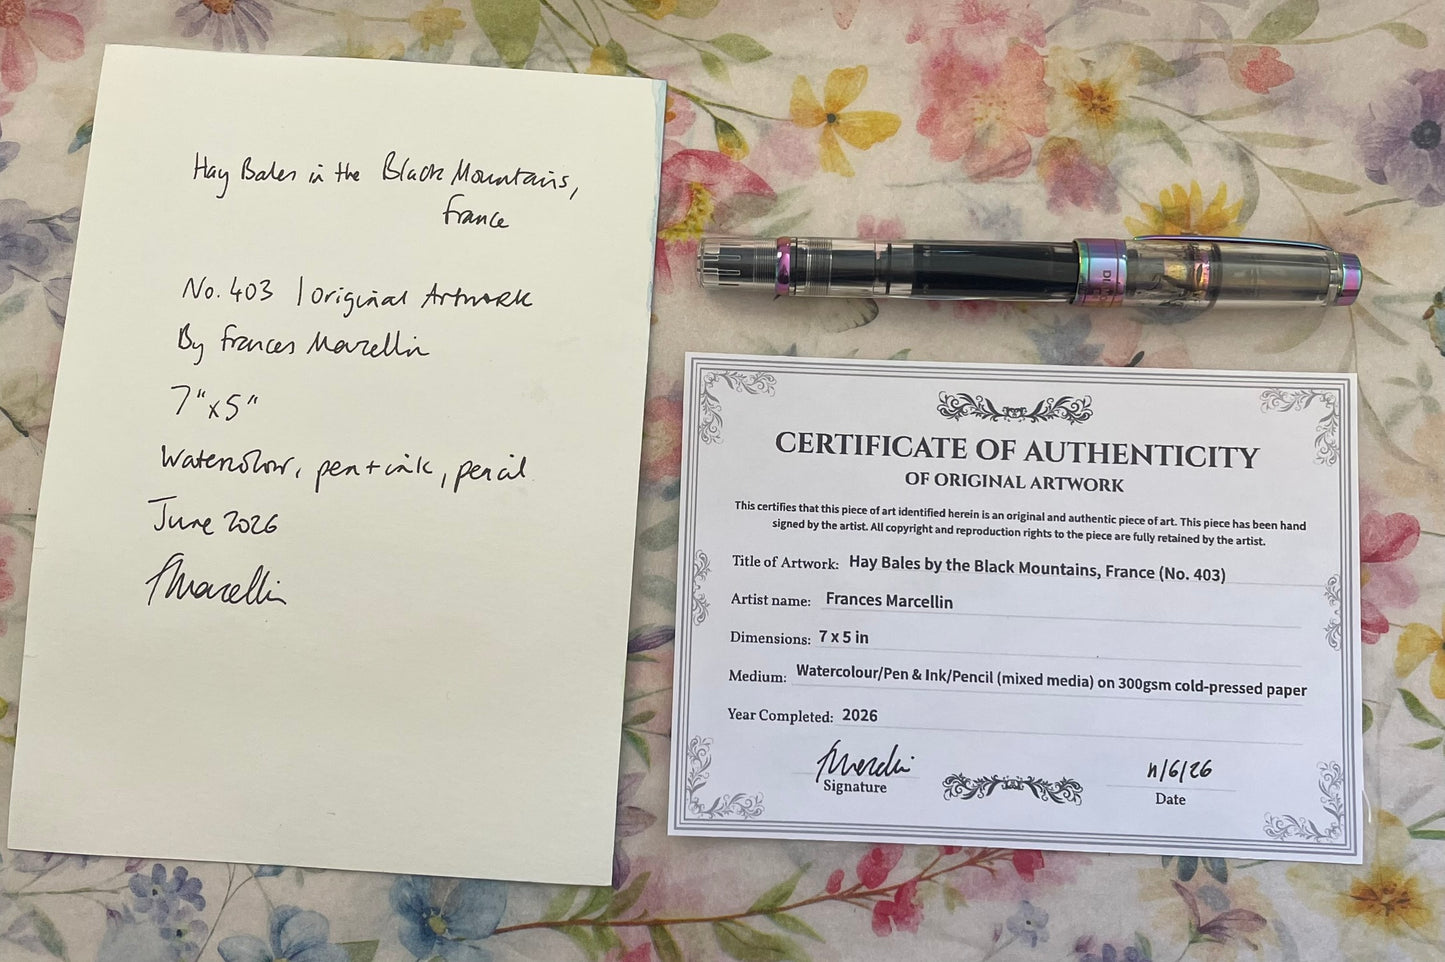 Hay Bales in the Black Mountains,
France
No. 403 | Original Artwork
By Frances Marcellin
7"x5"
Watercolour, pen + ink, pencil
June 2026
FMarcellin
CERTIFICATE OF AUTHENTICITY
OF ORIGINAL ARTWORK
This certifies that this piece of art identified herein is an original and authentic piece of art. This piece has been hand
signed by the artist. All copyright and reproduction rights to the piece are fully retained by the artist.
Title of Artwork: Hay Bales by the Black Mountains, France (No. 403)
Artist name: Frances Marcellin
Dimensions: 7 x 5 in
Medium: Watercolour/Pen & Ink/Pencil (mixed media) on 300gsm cold-pressed paper
Year Completed: 2026
FMarcellin
Signature
11/6/26
Date